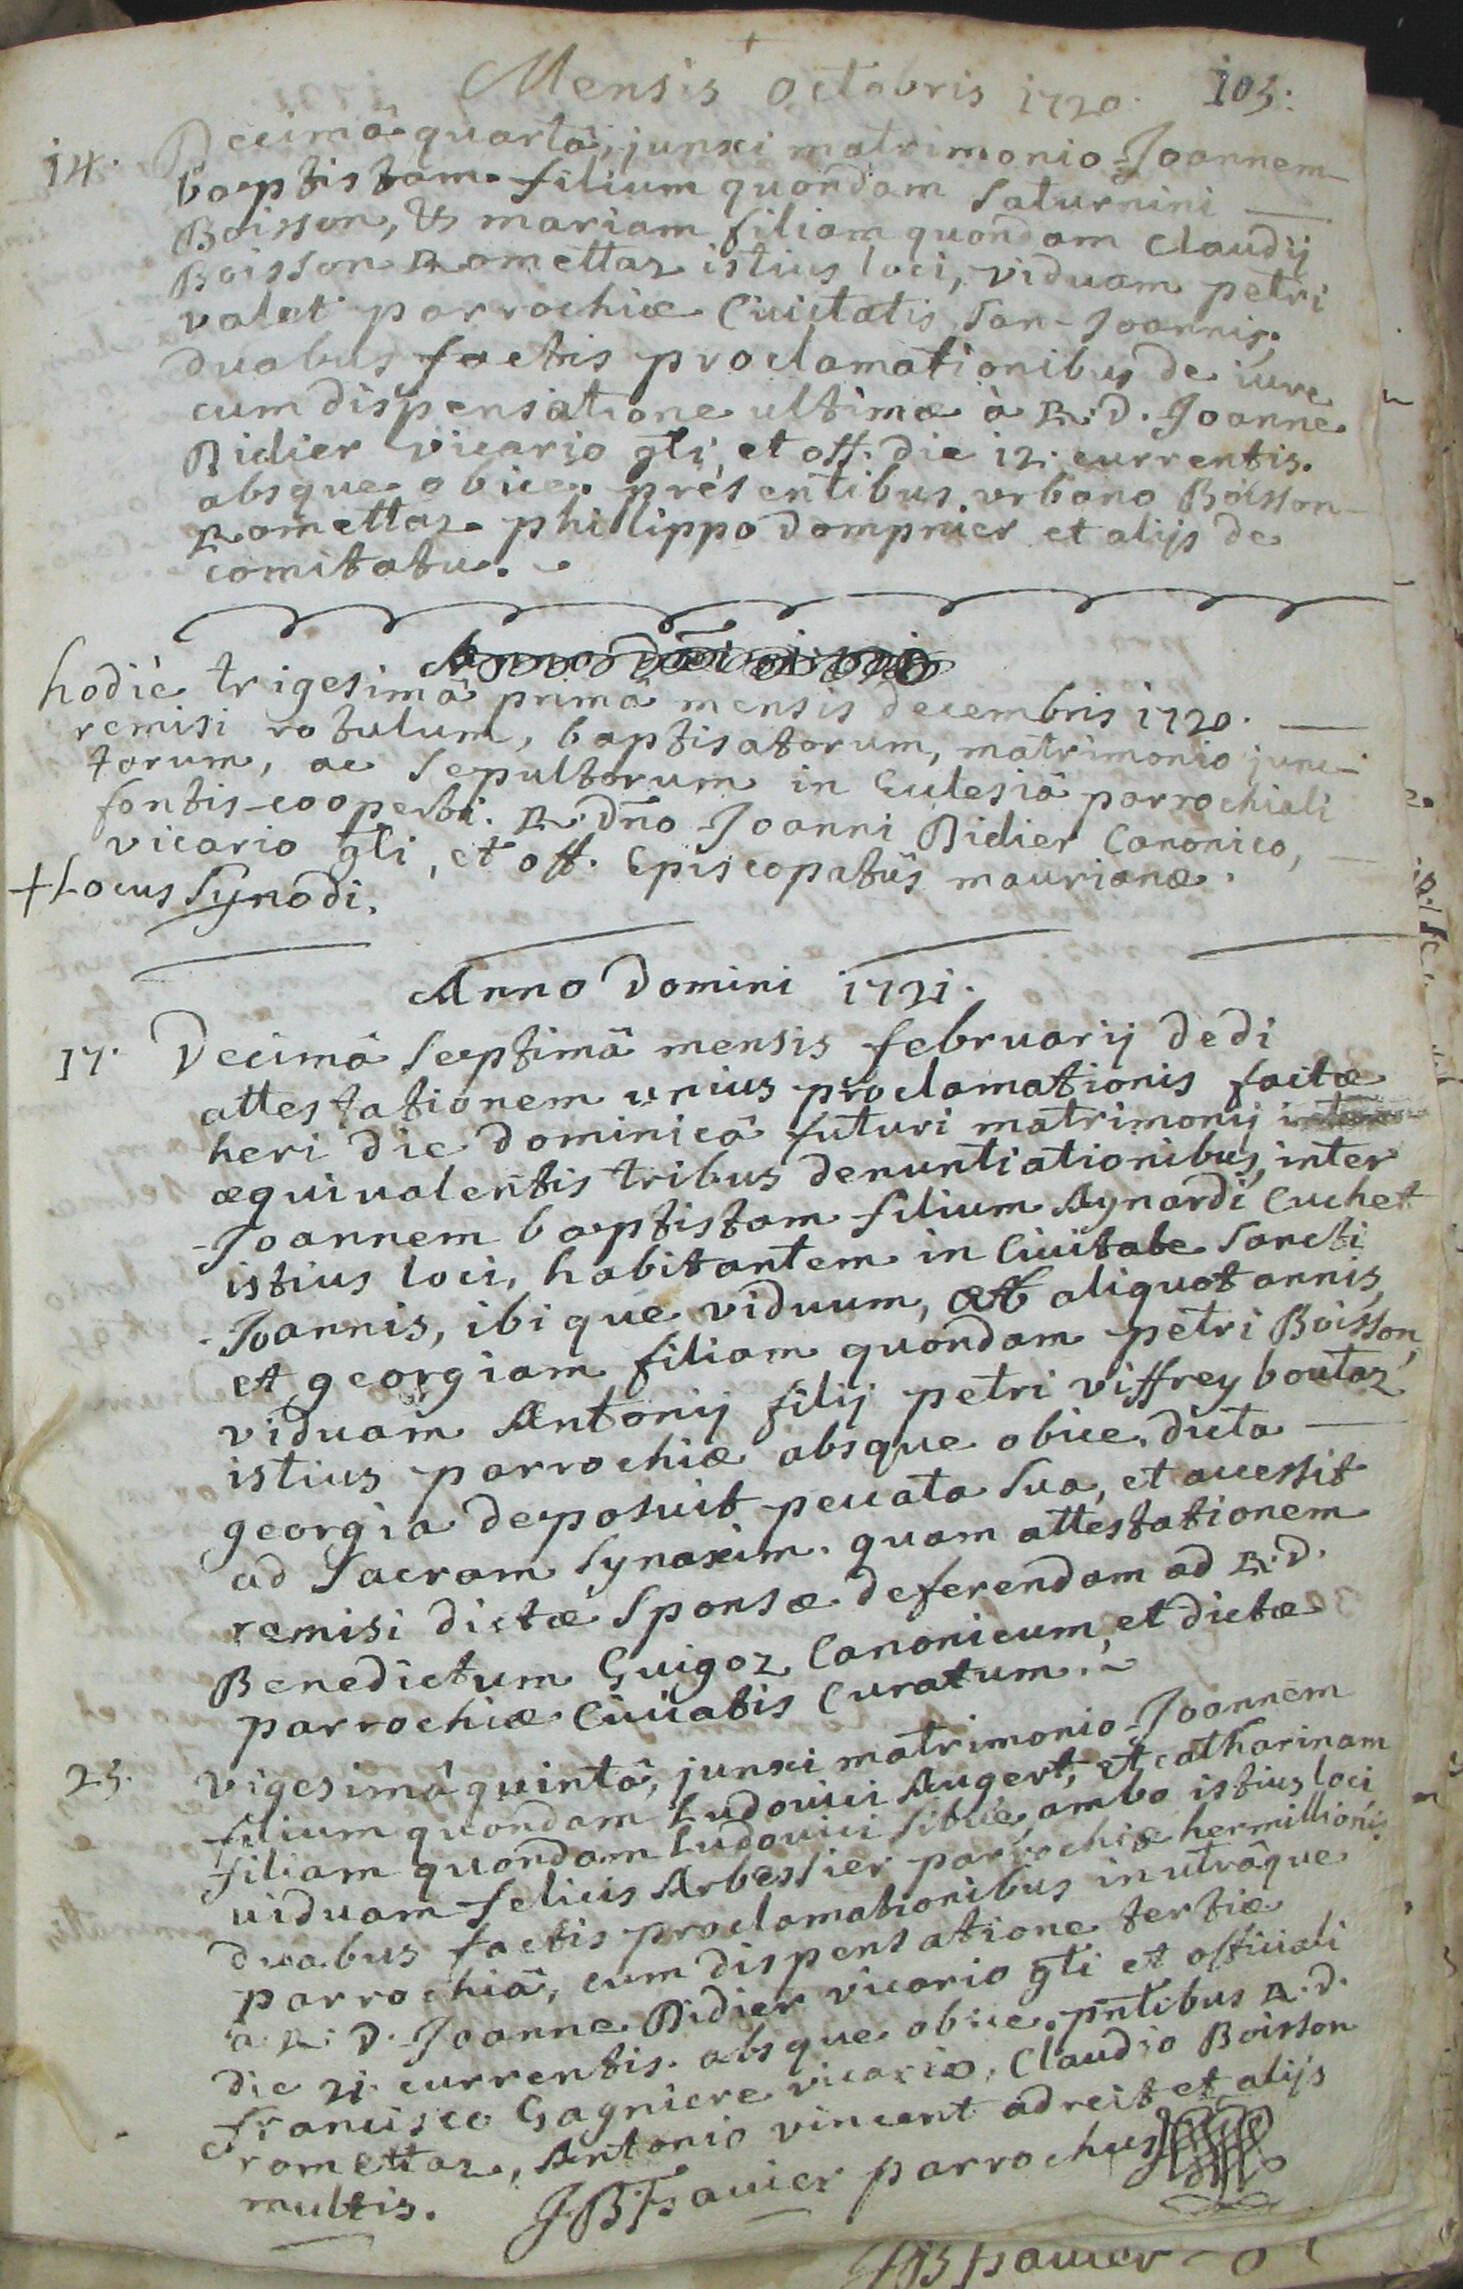 Mensis octobris 1720. 105.
14. Decimâ quartâ, junxi matrimonio Joannem
baptistam filium quondam Saturnini
Boisson, & mariam filiam quondam Claudij
Boisson Ramettaz istius loci, viduam petri
valet parrochiæ Civitatis San-Joannis,
duabus factis proclamationibus de iure
cum dispensatione ultimæ à R. D. Joanne
Didier vicario gli, et off. die 12. currentis.
absque obice. présentibus urbano Boisson
Ramettaz philippo dompnier et alijs de
comitatu.
hodiè trigesimâ primâ mensis decembris 1720.
remisi rotulum, baptisatorum, matrimonio junc-
torum, ac sepultorum in Ecclesiâ parrochiali
fontis-cooperti. R. Dño Joanni Didier Canonico,
vicario gli, et off. Episcopatûs maurianæ.
+Locus Synodi.
Anno Domini 1721.
17. Decimâ Septimâ mensis februarij dedi
attestationem unius proclamationis factæ
heri die dominicâ futuri matrimonij
æquivalentis tribus denuntiationibus, inter
Joannem baptistam filium Aynardi Cuchet
istius loci, habitantem in Civitate Sancti
Joannis, ibique viduum, ab aliquot annis,
et georgiam filiam quondam petri Boisson,
viduam Antonij filij petri viffrey boutaz
istius parrochiæ absque obice, dicta
georgia deposuit peccata sua, et accessit
ad Sacram Synaxim. quam attestationem
remisi dictæ Sponsæ deferendam ad R. D.
Benedictum Guigoz Canonicum, et dictæ
parrochiæ Civitatis Curatum.
25. vigesimâ quintâ, junxi matrimonio Joannem
filium quondam Ludovici Augert, et catharinam
filiam quondam Ludovici Sibué, ambo istius loci
viduam felicis Arbessier parrochiæ hermillionis
duabus factis proclamationibus in utrâque
parrochiâ, cum dispensatione tertiæ
a R. D. Joanne Didier vicario gli et officiali
die 21. currentis. absque obice. pntibus R. D.
francisco Gagniere vicario, Claudio Boisson
ramettaz, Antonio vincent adreit et alijs
multis. JB Favier parrochus